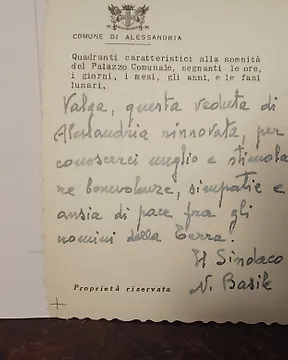 COMUNE DI ALESSANDRIA
Quadranti caratteristici alla somnità
del Palazzo Comunale, segnanti le ore,
i giorni, i mesi, gli anni, e le fasi
lunari,
Valga, questa veduta di
Alessandria rinnovata, per
conoscerci meglio e stimola
re benevolenze, simpatie e
ansia di pace fra gli
uomini della Terra.
Il Sindaco
N. Basile
Proprietà riservata